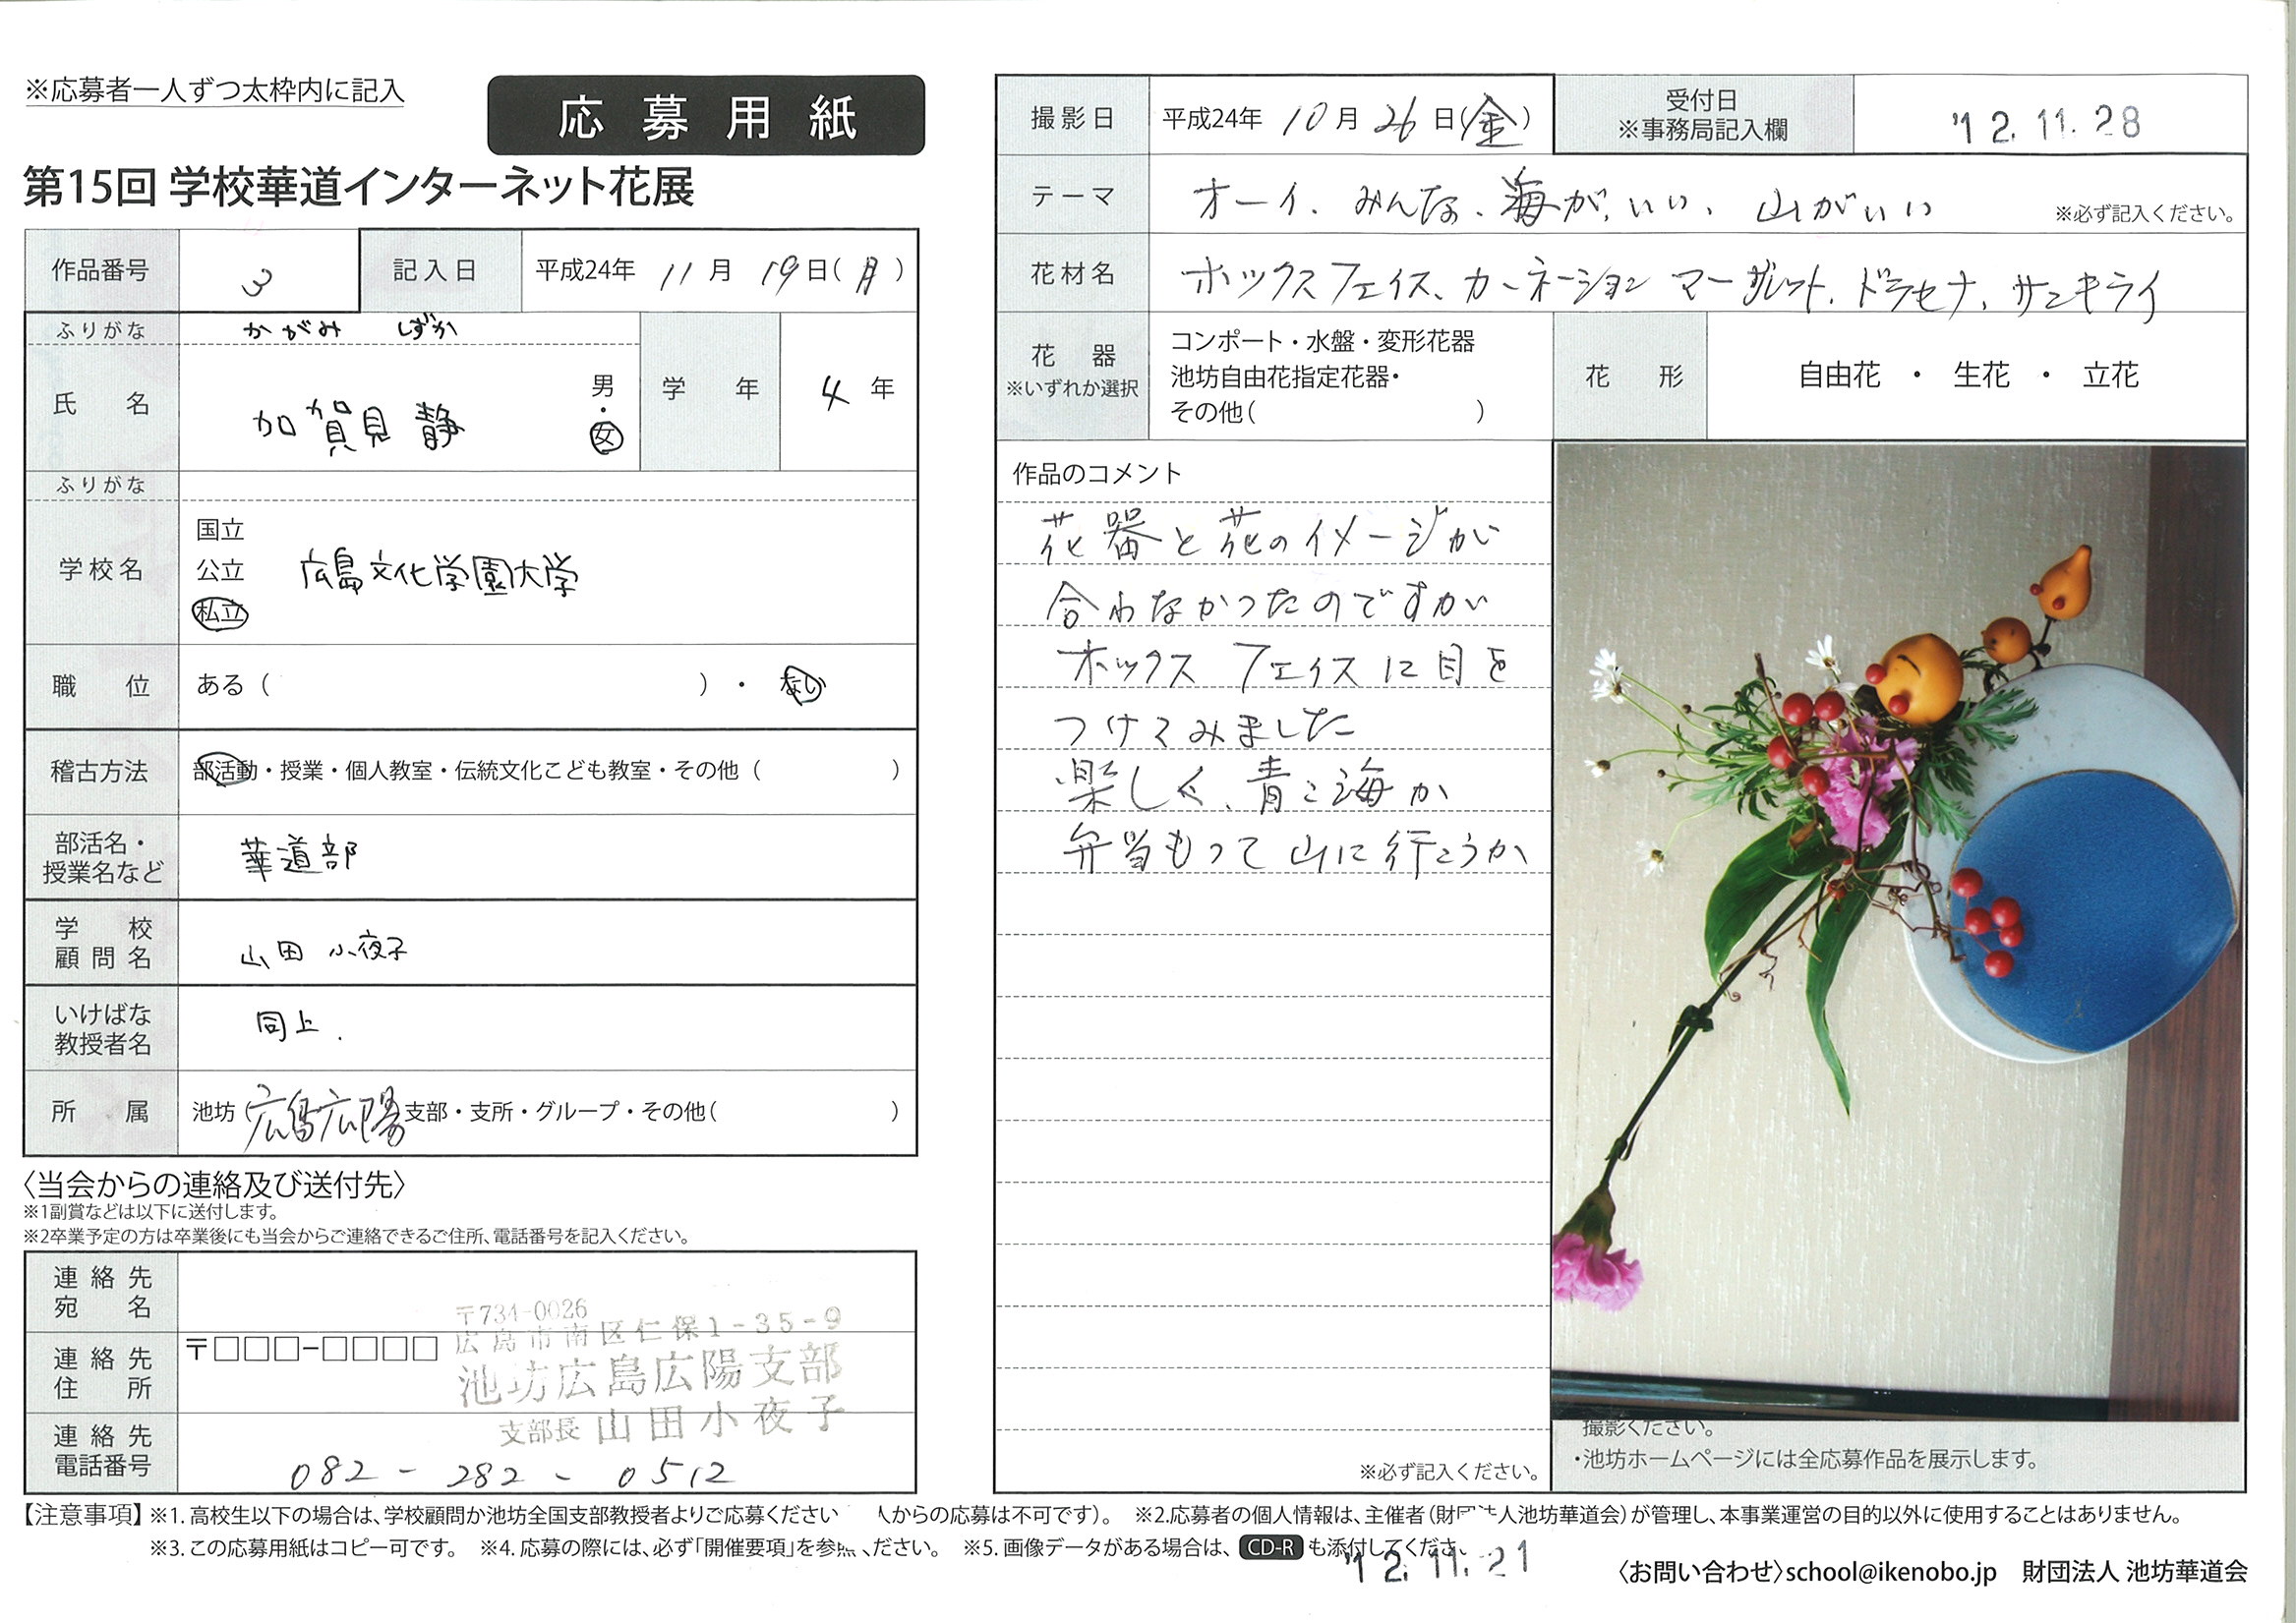 ※応募者一人ずつ太枠内に記入
応募用紙
第15回 学校華道インターネット花展
作品番号 3 記入日 平成24年 11月 19日(月)
ふりがな かがみ しずか
氏名 加賀見 静 男・女 学年 4年
ふりがな
学校名 国立 公立 私立 広島文化学園大学
職位 ある( )・ない
稽古方法 部活動・授業・個人教室・伝統文化こども教室・その他( )
部活名・授業名など 華道部
学校顧問名 山田 小夜子
いけばな教授者名 同上.
所属 池坊(広島広陽 支部・支所・グループ・その他( )
〈当会からの連絡及び送付先〉
※1副賞などは以下に送付します。
※2卒業予定の方は卒業後にも当会からご連絡できるご住所、電話番号を記入ください。
連絡先宛名
連絡先住所 〒□□□-□□□□
〒734-0026
広島市南区仁保1-35-9
池坊広島広陽支部
支部長 山田小夜子
連絡先電話番号 082-282-0512
撮影日 平成24年 10月 26日(金)
受付日 ※事務局記入欄 '12.11.28
テーマ オーイ、みんな、海が、いい、山がいい ※必ず記入ください。
花材名 ホックスフェイス、カーネーション マーガレット、ドラセナ、サンキライ
花器 ※いずれか選択 コンポート・水盤・変形花器
池坊自由花指定花器・
その他( )
花形 自由花 ・ 生花 ・ 立花
作品のコメント
花器と花のイメージが
合わなかったのですが
ホックス フェイスに目を
つけてみました
楽しく、青こ海か
弁当もって山に行こうか
※必ず記入ください。
撮影ください。
・池坊ホームページには全応募作品を展示します。
【注意事項】※1. 高校生以下の場合は、学校顧問か池坊全国支部教授者よりご応募ください 人からの応募は不可です)。 ※2.応募者の個人情報は、主催者(財団法人池坊華道会)が管理し、本事業運営の目的以外に使用することはありません。
※3. この応募用紙はコピー可です。 ※4. 応募の際には、必ず「開催要項」を参照ください。 ※5. 画像データがある場合は、CD-Rも添付してください
'12.11.21
〈お問い合わせ〉school@ikenobo.jp 財団法人 池坊華道会